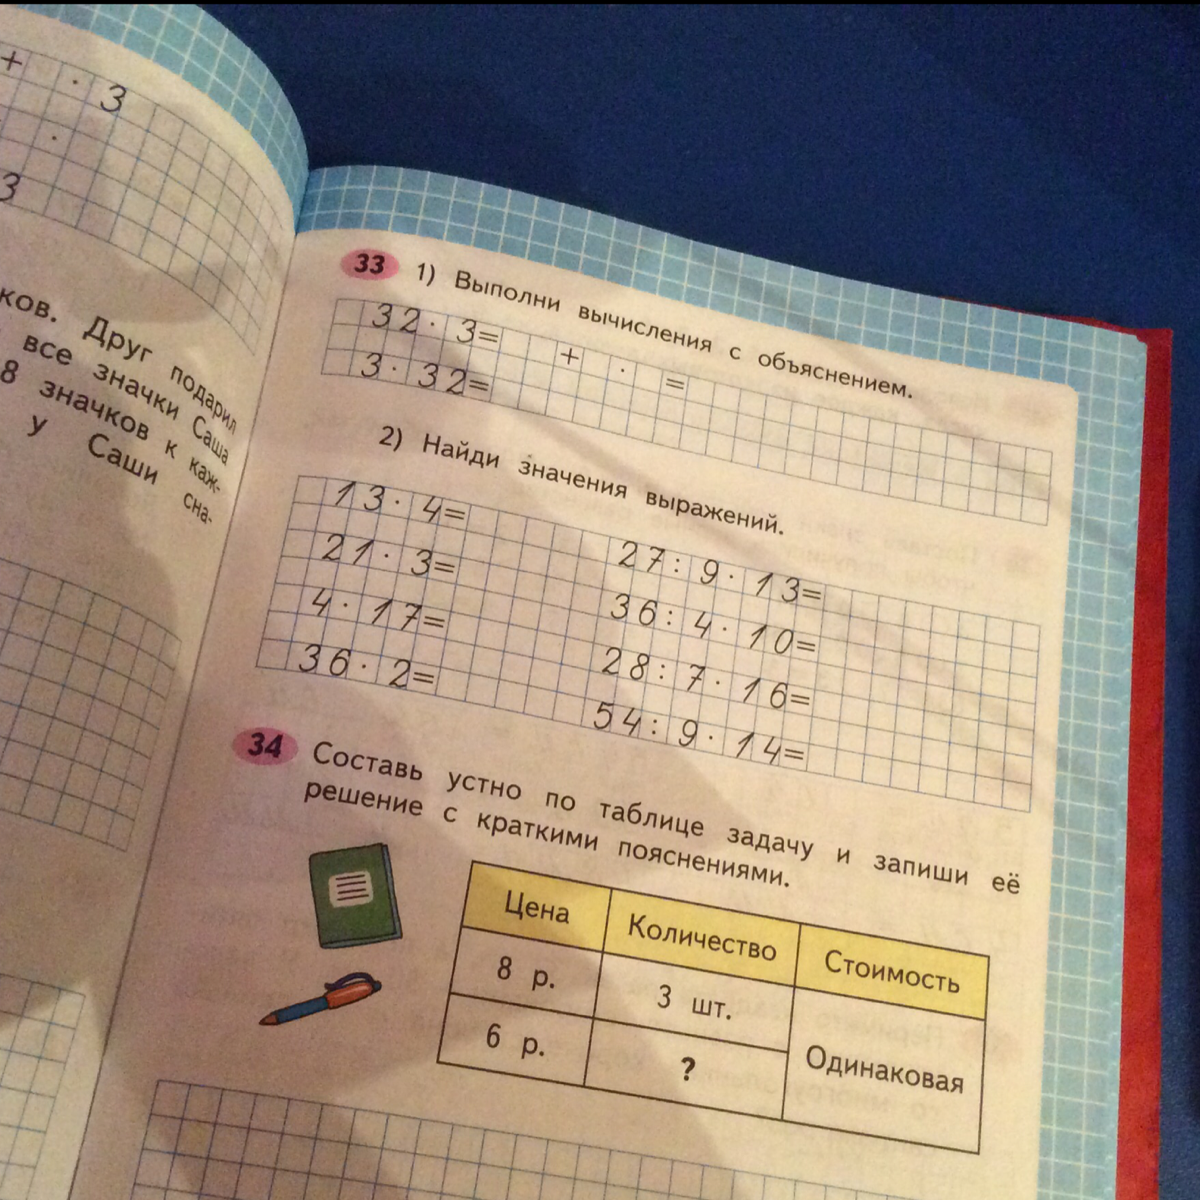 + · 3
·
3
ков. Друг подарил
все значки Саша
8 значков к каж-
у Саши сна-
33 1) Выполни вычисления с объяснением.
32 · 3= + · =
3 · 32=
2) Найди значения выражений.
13 · 4=
21 · 3=
4 · 17=
36 · 2=
27 : 9 · 13=
36 : 4 · 10=
28 : 7 · 16=
54 : 9 · 14=
34 Составь устно по таблице задачу и запиши её
решение с краткими пояснениями.
Цена Количество Стоимость
8 р. 3 шт. Одинаковая
6 р. ?